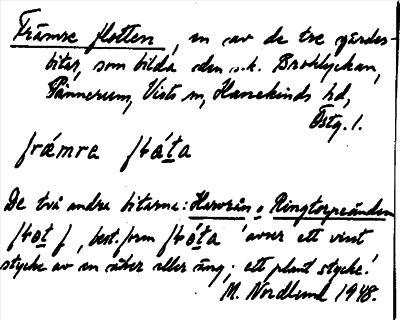 Främre flotten, en av de tre gärdes-
bitar, som bilda den s.k. Broklyckan,
Pännerum, Vists sn, Hanekinds hd,
Östg. l.
främra flåta
De två andra bitarna: Havrän o Ringtorpeänden
flåt f, best. form flåta 'avser ett visst
stycke av en åker eller äng; ett plant stycke.'
M. Nordlund 1948.